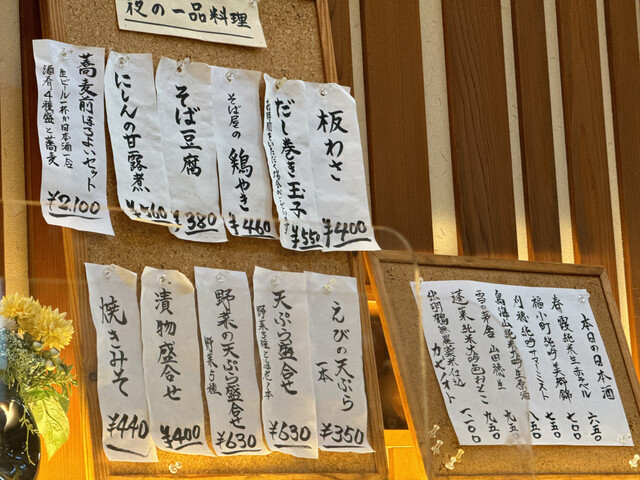 夜の一品料理
板わさ
¥400
だし巻き玉子
お時間をいただく場合がございます
¥550
そば屋の
鶏やき
¥460
そば豆腐
¥380
にしんの甘露煮
¥560
蕎麦前ほろよいセット
生ビール一杯か日本酒一合
酒肴4種盛と蕎麦
¥2,100
えびの天ぷら
一本
¥350
天ぷら盛合せ
¥630
野菜の天ぷら盛合せ
野菜5種
¥630
漬物盛合せ
¥400
焼きみそ
¥440
本日の日本酒
六五〇
春霞純米生赤ラベル
七〇〇
福小町純吟美郷錦
七五〇
八五〇
九五〇
雪の茅舎 山田穂生
九五〇
一一〇〇